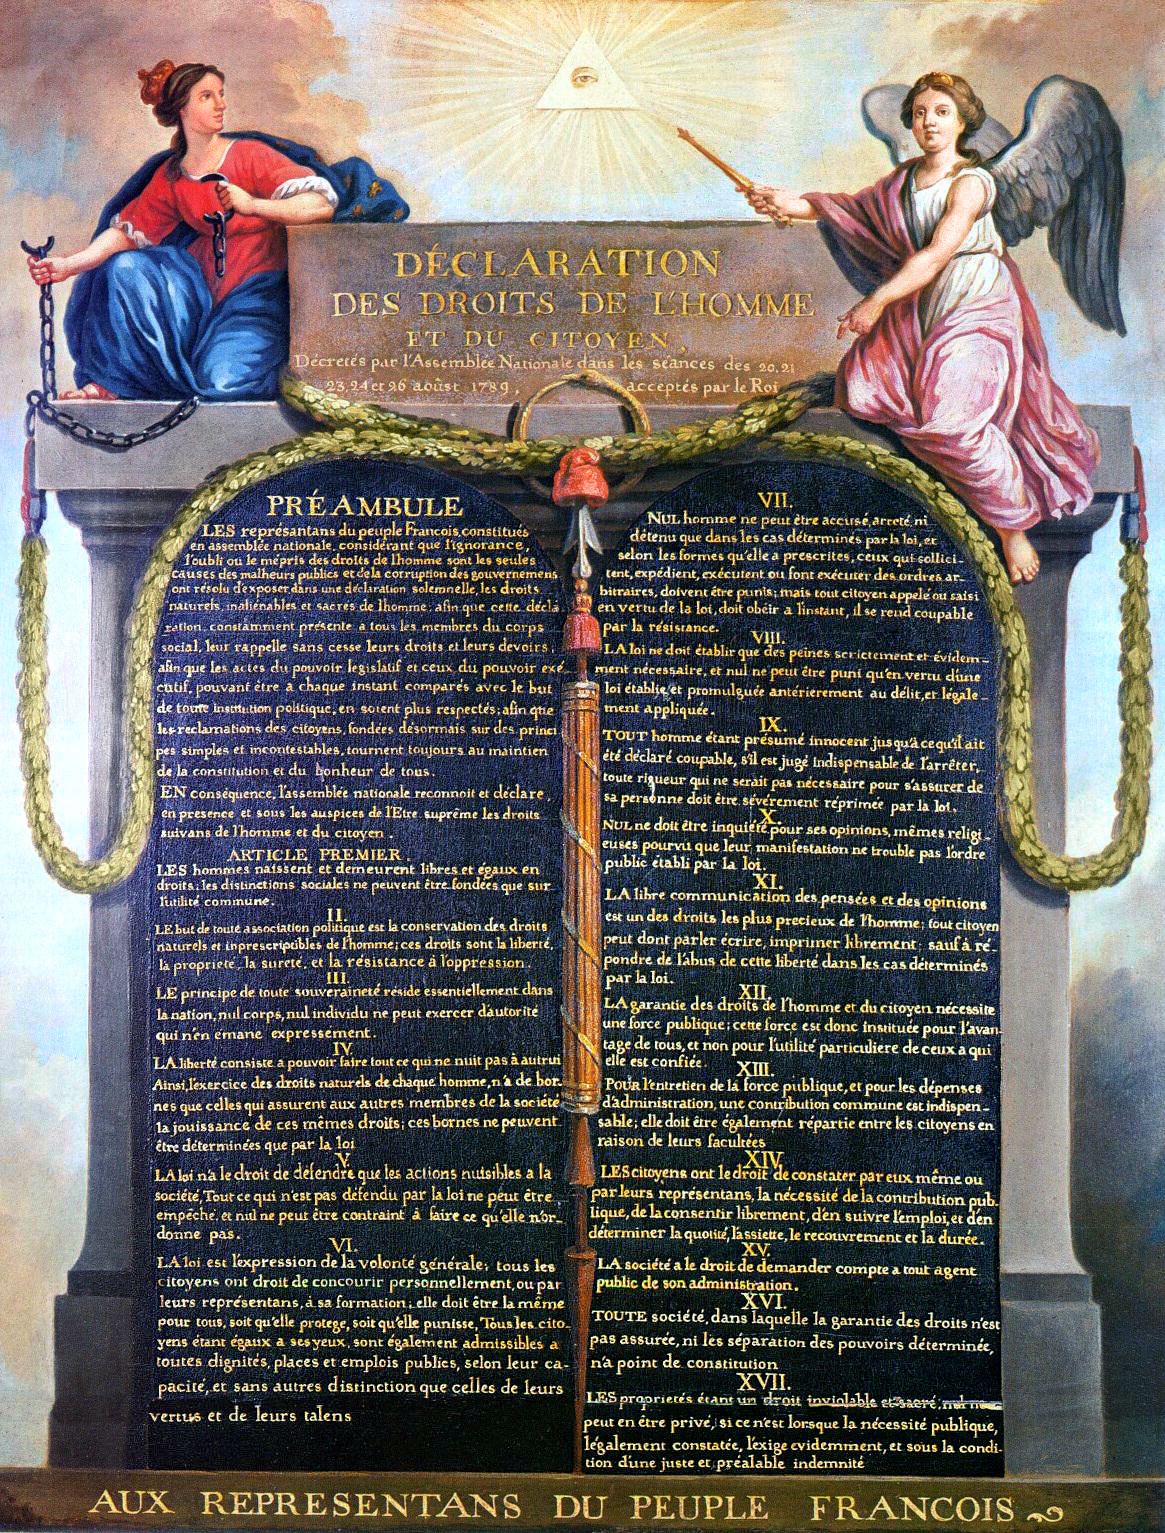 DÉCLARATION
DES DROITS DE L'HOMME
ET DU CITOYEN,
Décretés par l'Assemblée Nationale dans les séances des 20, 21
23, 24 et 26 août 1789, acceptés par le Roi
PRÉAMBULE
LES représantans du peuple Francois, constitués
en assemblée nationale, considérant que l'ignorance,
l'oubli ou le mépris des droits de l'homme sont les seules
causes des malheurs publics et de la corruption des gouvernemens
ont résolu d'exposer dans une déclaration solemnelle, les droits
naturels, inaliénables et sacrés de l'homme; afin que cette décla
ration, constamment présente a tous les membres du corps
social, leur rappelle sans cesse leurs droits et leurs devoirs;
afin que les actes du pouvoir législatif et ceux du pouvoir exé
cutif, pouvant être a chaque instant comparés avec le but
de toute institution politique, en soient plus respectés; afin que
les reclamations des citoyens, fondées désormais sur des princi
pes simples et incontestables, tournent toujours au maintien
de la constitution et du bonheur de tous.
EN conséquence, l'assemblée nationale reconnoit et déclare,
en presence et sous les auspices de l'Etre suprême les droits
suivans de l'homme et du citoyen.
ARTICLE PREMIER.
LES hommes naissent et demeurent libres et égaux en
droits; les distinctions sociales ne peuvent être fondées que sur
l'utilité commune.
II.
LE but de toute association politique est la conservation des droits
naturels et inprescriptibles de l'homme; ces droits sont la liberté,
la propriete, la sureté, et la résistance à l'oppression.
III.
LE principe de toute souveraineté réside essentiellement dans
la nation, nul corps, nul individu ne peut exercer d'autorité
qui n'en emane expressement.
IV.
LA liberté consiste a pouvoir faire tout ce qui ne nuit pas à autrui
Ainsi, l'exercice des droits naturels de chaque homme, n'a de bor-
nes que celles qui assurent aux autres membres de la société
la jouissance de ces mêmes droits; ces bornes ne peuvent
être déterminées que par la loi
V.
LA loi n'a le droit de défendre que les actions nuisibles a la
société, Tout ce qui n'est pas défendu par la loi ne peut être
empéché, et nul ne peut être contraint à faire ce qu'elle n'or-
donne pas.
VI.
LA loi est l'expression de la volonté générale; tous les
citoyens ont droit de concourir personnellement, ou par
leurs représentans, à sa formation; elle doit être la même
pour tous, soit qu'elle protege, soit qu'elle punisse, Tous les cito-
yens étant égaux a ses yeux, sont également admissibles a
toutes dignités, places et emplois publics, selon leur ca-
pacité, et sans autres distinction que celles de leurs
vertus et de leurs talens
VII.
NUL homme ne peut être accusé, arreté, ni
détenu que dans les cas déterminés par la loi, et
selon les formes qu'elle a prescrites, ceux qui sollici-
tent, expédient, exécutent ou font exécuter des ordres ar-
bitraires, doivent être punis; mais tout citoyen appelé ou saisi
en vertu de la loi, doit obéir a l'instant, il se rend coupable
par la résistance.
VIII.
LA loi ne doit établir que des peines strictement et évidem-
ment nécessaire, et nul ne peut être puni qu'en vertu d'une
loi établie et promulguée antérierement au délit, et légale-
ment appliquée.
IX.
TOUT homme étant présumé innocent jusqu'a ce qu'il ait
été déclaré coupable, s'il est jugé indispensable de l'arrêter,
toute rigueur qui ne serait pas nécessaire pour s'assurer de
sa personne doit être sévérement réprimée par la loi.
X.
NUL ne doit être inquiété pour ses opinions, mêmes religi-
euses pourvu que leur manifestation ne trouble pas l'ordre
public établi par la loi.
XI.
LA libre communication des pensées et des opinions
est un des droits les plus precieux de l'homme; tout citoyen
peut dont parler écrire, imprimer librement; sauf à ré-
pondre de l'abus de cette liberté dans les cas déterminés
par la loi.
XII.
LA garantie des droits de l'homme et du citoyen nécessite
une force publique; cette force est donc instituée pour l'avan-
tage de tous, et non pour l'utilité particuliere de ceux a qui
elle est confiée.
XIII.
POUR l'entretien de la force publique, et pour les dépenses
d'administration, une contribution commune est indispen-
sable; elle doit être également répartie entre les citoyens en
raison de leurs facultées
XIV.
LES citoyens ont le droit de constater par eux même ou
par leurs représentans, la nécessité de la contribution pub-
lique, de la consentir librement, d'en suivre l'emploi, et d'en
déterminer la quotité, l'assiette, le recouvrement et la durée.
XV.
LA société a le droit de demander compte a tout agent
public de son administration.
XVI.
TOUTE société, dans laquelle la garantie des droits n'est
pas assurée, ni les séparation des pouvoirs déterminée,
n'a point de constitution
XVII.
LES proprietés étant un droit inviolable et sacré, nul ne
peut en être privé, si ce n'est lorsque la nécessité publique,
légalement constatée, l'exige evidemment, et sous la condi-
tion d'une juste et préalable indemnité
AUX REPRESENTANS DU PEUPLE FRANCOIS